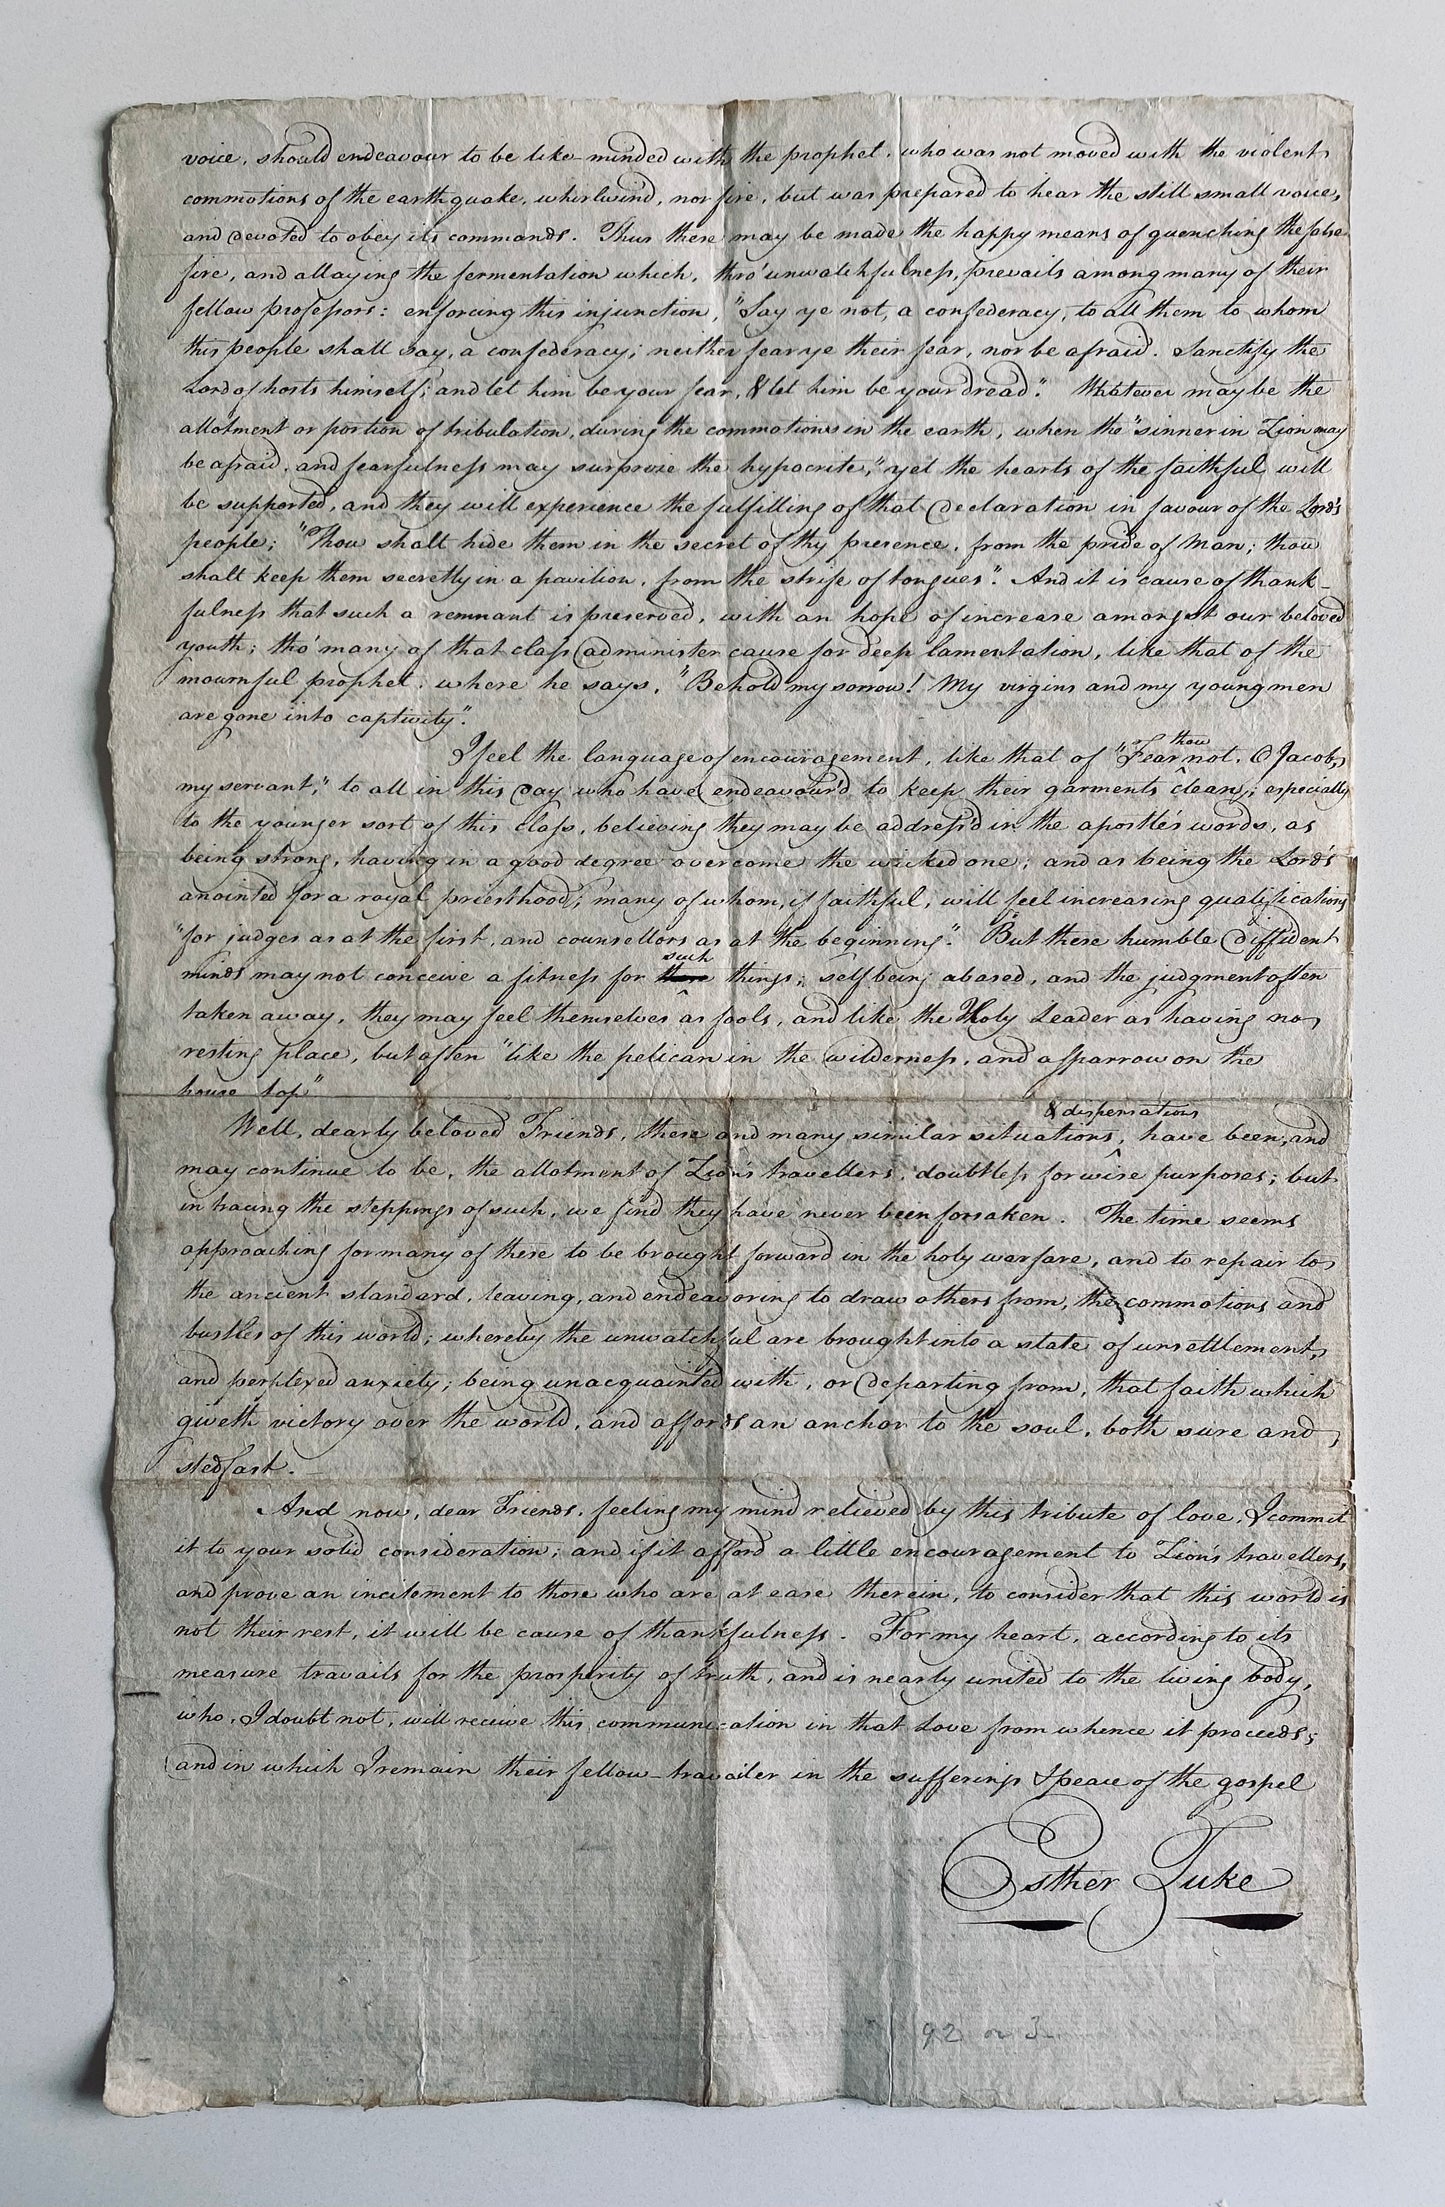 voice, should endeavour to be like-minded with the prophet, who was not moved with the violent
commotions of the earthquake, whirlwind, nor fire, but was prepared to hear the still small voice,
and devoted to obey its commands. Thus these may be made the happy means of quenching the false
fire, and allaying the fermentation which, thro' unwatchfulness, prevails among many of their
fellow professors: enforcing this injunction, "Say ye not, a confederacy, to all them to whom
this people shall say, a confederacy; neither fear ye their fear, nor be afraid. Sanctify the
Lord of hosts himself; and let him be your fear, & let him be your dread". Whatever may be the
allotment or portion of tribulation, during the commotions in the earth, when the "sinner in Zion may
be afraid, and fearfulness may surprize the hypocrite," yet the hearts of the faithful will
be supported, and they will experience the fulfilling of that declaration in favour of the Lord's
people; "Thou shalt hide them in the secret of thy presence, from the pride of Man; thou
shalt keep them secretly in a pavilion, from the strife of tongues". And it is cause of thank-
fulness that such a remnant is preserved, with an hope of increase amongst our beloved
youth; tho' many of that class administer cause for deep lamentation, like that of the
mournful prophet, where he says, "Behold my sorrow! My virgins and my young men
are gone into captivity".
I feel the language of encouragement, like that of "Fear thou not, O Jacob,
my servant," to all in this day who have endeavour'd to keep their garments clean; especially
to the younger sort of this class, believing they may be address'd in the apostle's words, as
being strong, having in a good degree overcome the wicked one; and as being the Lord's
anointed for a royal priesthood; many of whom, if faithful, will feel increasing qualifications
"for judges as at the first, and counsellors as at the beginning". But these humble diffident
minds may not conceive a fitness for such things; self being abased, and the judgment often
taken away, they may feel themselves as fools, and like the Holy Leader as having no
resting place, but often "like the pelican in the wilderness, and a sparrow on the
house top"
Well, dearly beloved Friends, these and many similar situations, & dispensations have been, and
may continue to be, the allotment of Zion's travellers, doubtless for wise purposes; but
in tracing the steppings of such, we find they have never been forsaken. The time seems
approaching for many of these to be brought forward in the holy warfare, and to repair to
the ancient standard, leaving, and endeavoring to draw others from, the commotions and
bustles of this world; whereby the unwatchful are brought into a state of unsettlement,
and perplexed anxiety; being unacquainted with, or departing from, that faith which
giveth victory over the world, and affords an anchor to the soul, both sure and
stedfast.
And now, dear Friends, feeling my mind relieved by this tribute of love, I commit
it to your solid consideration; and if it afford a little encouragement to Zion's travellers,
and prove an incitement to those who are at ease therein, to consider that this world is
not their rest, it will be cause of thankfulness. For my heart, according to its
measure travails for the prosperity of truth, and is nearly united to the living body,
who, I doubt not, will receive this communication in that Love from whence it proceeds;
and in which I remain their fellow-travailer in the sufferings & peace of the gospel
Esther Tuke
92 or 3